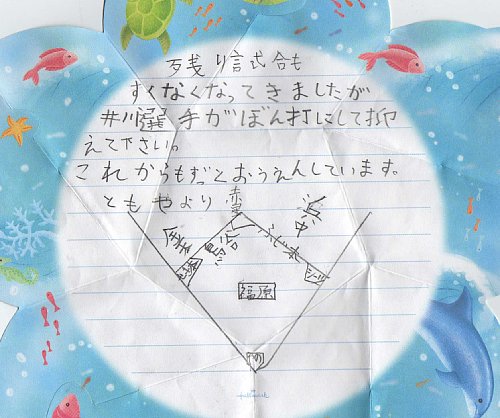 残り試合も
すくなくなってきましたが
井川選手がぼん打にして抑
えて下さい。
これからもずっとおうえんしています。
ともやより
赤星
浜中
金本
鳥谷
ふじ本
シーツ
福原
Hallmark